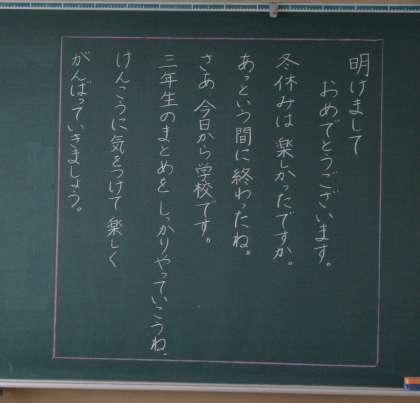 明けまして
おめでとうございます。
冬休みは楽しかったですか。
あっという間に終わったね。
さあ今日から学校です。
三年生のまとめをしっかりやっていこうね。
けんこうに気をつけて楽しく
がんばっていきましょう。